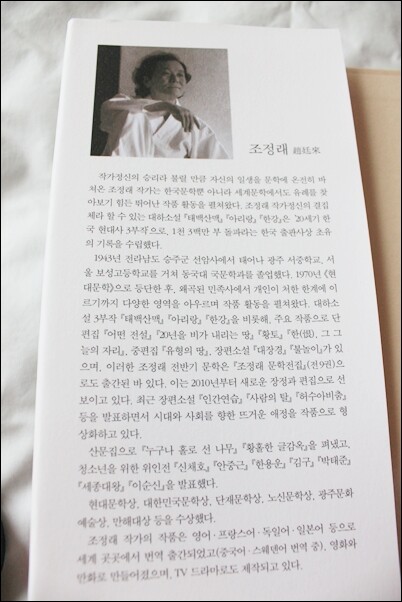 조정래 趙廷來
작가정신의 승리라 불릴 만큼 자신의 일생을 문학에 온전히 바
쳐온 조정래 작가는 한국문학뿐 아니라 세계문학에서도 유례를 찾
아보기 힘든 뛰어난 작품 활동을 펼쳐왔다. 조정래 작가정신의 결집
체라 할 수 있는 대하소설 『태백산맥』 『아리랑』 『한강』은 '20세기 한
국 현대사 3부작'으로, 1천 3백만 부 돌파라는 한국 출판사상 초유
의 기록을 수립했다.
1943년 전라남도 승주군 선암사에서 태어나 광주 서중학교, 서
울 보성고등학교를 거쳐 동국대 국문학과를 졸업했다. 1970년 《현
대문학》으로 등단한 후, 왜곡된 민족사에서 개인이 처한 한계에 이
르기까지 다양한 영역을 아우르며 작품 활동을 펼쳐왔다. 대하소
설 3부작 『태백산맥』 『아리랑』 『한강』을 비롯해, 주요 작품으로 단
편집 『어떤 전설』 『20년을 비가 내리는 땅』 『황토』 『한(恨), 그 그
늘의 자리』, 중편집 『유형의 땅』, 장편소설 『대장경』 『불놀이』가 있
으며, 이러한 조정래 전반기 문학은 『조정래 문학전집』(전9권)으
로도 출간된 바 있다. 이는 2010년부터 새로운 장정과 편집으로 선
보이고 있다. 최근 장편소설 『인간연습』 『사람의 탈』 『허수아비춤』
등을 발표하면서 시대와 사회를 향한 뜨거운 애정을 작품으로 형
상화하고 있다.
산문집으로 『누구나 홀로 선 나무』 『황홀한 글감옥』을 펴냈고,
청소년을 위한 위인전 『신채호』 『안중근』 『한용운』 『김구』 『박태준』
『세종대왕』 『이순신』을 발표했다.
현대문학상, 대한민국문학상, 단재문학상, 노신문학상, 광주문화
예술상, 만해대상 등을 수상했다.
조정래 작가의 작품은 영어·프랑스어·독일어·일본어 등으로
세계 곳곳에서 번역 출간되었고(중국어·스웨덴어 번역 중), 영화와
만화로 만들어졌으며, TV 드라마로도 제작되고 있다.